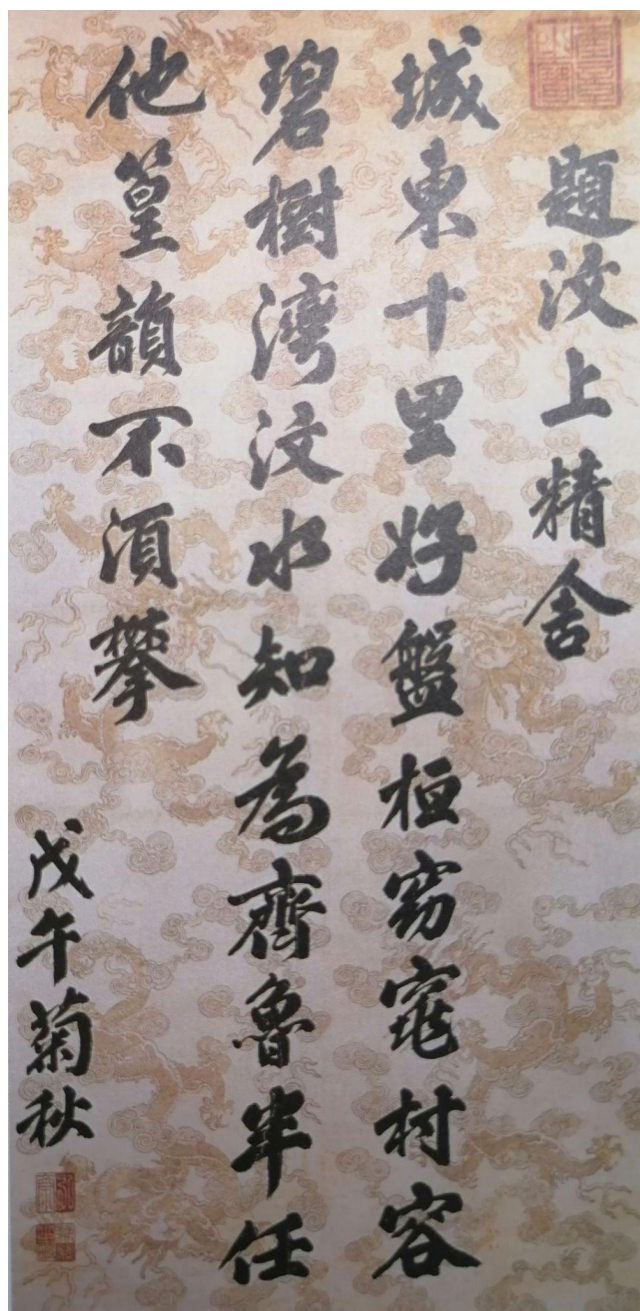 題汶上精舍
城東十里好盤桓窈窕村容
碧樹湾汶水知為齊魯半任
他篁韻不須攀
戊午菊秋